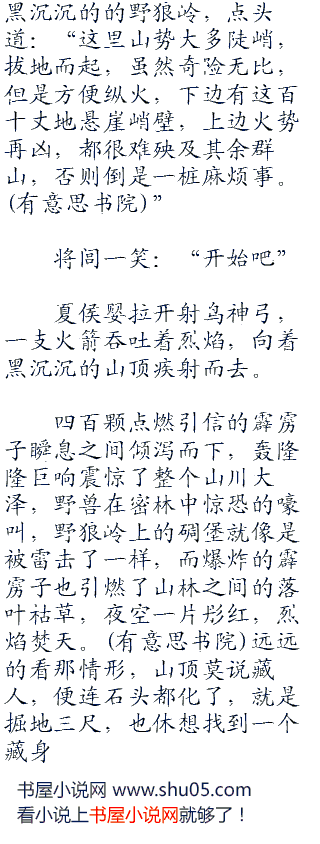 黑沉沉的的野狼岭，点头
道：“这里山势大多陡峭，
拔地而起，虽然奇险无比，
但是方便纵火，下边有这百
十丈地悬崖峭壁，上边火势
再凶，都很难殃及其余群
山，否则倒是一桩麻烦事。
(有意思书院)”
将闾一笑：“开始吧”
夏侯婴拉开射鸟神弓，
一支火箭吞吐着烈焰，向着
黑沉沉的山顶疾射而去。
四百颗点燃引信的霹雳
子瞬息之间倾泻而下，轰隆
隆巨响震惊了整个山川大
泽，野兽在密林中惊恐的嚎
叫，野狼岭上的碉堡就像是
被雷击了一样，而爆炸的霹
雳子也引燃了山林之间的落
叶枯草，夜空一片彤红，烈
焰焚天。(有意思书院)远远
的看那情形，山顶莫说藏
人，便连石头都化了，就是
掘地三尺，也休想找到一个
藏身
书屋小说网 www.shu05.com
看小说上书屋小说网就够了！